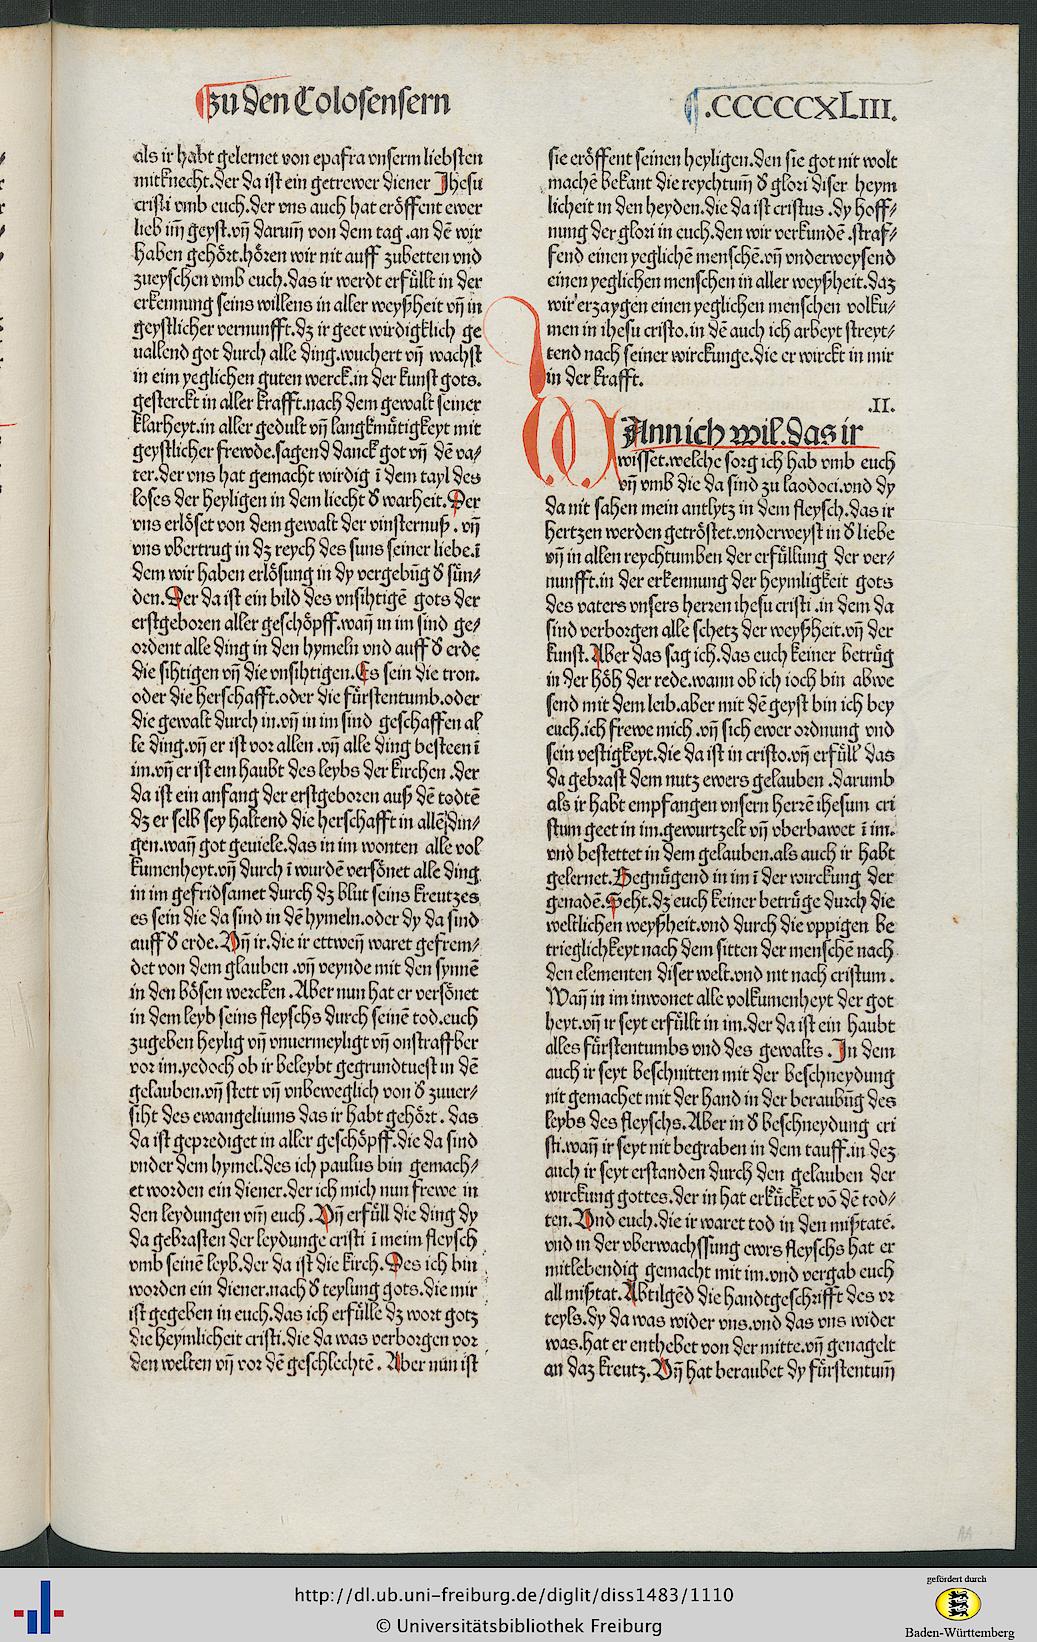 zu den Colosensern
.CCCCCXLIII.
als ir habt gelernet von epafra vnserm liebsten
mitknecht.der da ist ein getrewer diener Jhesu
cristi vmb euch.der vns auch hat eröffent ewer
lieb im̄ geyst.vn̄ darum̄ von dem tag .an dē wir
haben gehört.hören wir nit auff zubetten vnd
zueyschen vmb euch.das ir werdt erfüllt in der
erkennung seins willens in aller weyßheit vn̄ in
geystlicher vernunfft.dz ir geet wirdigklich ge
uallend got durch alle ding.wuchert vn̄ wachst
in eim yeglichen guten werck.in der kunst gots.
gesterckt in aller krafft.nach dem gewalt seiner
klarheyt.in aller gedult vn̄ langkmütigkeyt mit
geystlicher frewde.sagend danck got vn̄ dē va⸗
ter.der vns hat gemacht wirdig ī dem tayl des
loses der heyligen in dem liecht ď warheit.Der
vns erlöset von dem gewalt der vinsternuß . vn̄
vns vbertrug in dz reych des suns seiner liebe.ī
dem wir haben erlösung in dy vergebūg ď sün⸗
den.Der da ist ein bild des vnsihtigē gots der
erstgeboren aller geschöpff.wan̄ in im sind ge⸗
ordent alle ding in den hymeln vnd auff ď erde
die sihtigen vn̄ die vnsihtigen.Es sein die tron.
oder die herschafft.oder die fürstentumb.oder
die gewalt durch in.vn̄ in im sind geschaffen al
le ding.vn̄ er ist vor allen .vn̄ alle ding besteen ī
im.vn̄ er ist ein haubt des leybs der kirchen .der
da ist ein anfang der erstgeboren auß dē todtē
dz er selb sey haltend die herschafft in allē din⸗
gen.wan̄ got geuiele.das in im wonten alle vol
kumenheyt.vn̄ durch ī wurdē versönet alle ding
in im gefridsamet durch dz blut seins kreutzes
es sein die da sind in dē hymeln.oder dy da sind
auff ď erde.Vn̄ ir.die ir ettwen̄ waret gefrem⸗
det von dem glauben .vn̄ veynde mit den synnē
in den bösen wercken .Aber nun hat er versönet
in dem leyb seins fleyschs durch seinē tod.euch
zugeben heylig vn̄ vnuermeyligt vn̄ onstraffber
vor im.yedoch ob ir beleybt gegrundtuest in dē
gelauben.vn̄ stett vn̄ vnbeweglich von ď zuuer⸗
siht des ewangeliums das ir habt gehört . das
da ist geprediget in aller geschöpff.die da sind
vnder dem hymel.des ich paulus bin gemach⸗
et worden ein diener.der ich mich nun frewe in
den leydungen vm̄ euch .Vn̄ erfüll die ding dy
da gebrasten der leydunge cristi ī meim fleysch
vmb seinē leyb.der da ist die kirch.Des ich bin
worden ein diener.nach ď teylung gots.die mir
ist gegeben in euch.das ich erfülle dz wort gotz
die heymlicheit cristi.die da was verborgen vor
den welten vn̄ vor dē geschlechtē . Aber nun ist
sie eröffent seinen heyligen.den sie got nit wolt
machē bekant die reychtum̄ ď glori diser heym
licheit in den heyden.die da ist cristus .dy hoff⸗
nung der glori in euch.den wir verkundē .straf⸗
fend einen yeglichē menschē.vn̄ vnderweysend
einen yeglichen menschen in aller weyßheit.daz
wir erzaygen einen yeglichen menschen volku⸗
men in ihesu cristo.in dē auch ich arbeyt streyt⸗
tend nach seiner wirckunge.die er wirckt in mir
in der krafft.
.II.
WAnn ich wil.das ir
wisset.welche sorg ich hab vmb euch
vn̄ vmb die da sind zu laodoci.vnd dy
da nit sahen mein antlytz in dem fleysch.das ir
hertzen werden getröstet.vnderweyst in ď liebe
vn̄ in allen reychtumben der erfüllung der ver⸗
nunfft.in der erkennung der heymligkeit gots
des vaters vnsers herren ihesu cristi .in dem da
sind verborgen alle schetz der weyßheit.vn̄ der
kunst. Aber das sag ich.das euch keiner betrüg
in der höh der rede.wann ob ich ioch bin abwe
send mit dem leib.aber mit dē geyst bin ich bey
euch.ich frewe mich .vn̄ sich ewer ordnung vnd
sein vestigkeyt.die da ist in cristo.vn̄ erfüll das
da gebrast dem nutz ewers gelauben .darumb
als ir habt empfangen vnsern herrē ihesum cri
stum geet in im.gewurtzelt vn̄ vberbawet ī im.
vnd bestettet in dem gelauben.als auch ir habt
gelernet.Begnügend in im ī der wirckung der
genadē.Seht.dz euch keiner betrüge durch die
weltlichen weyßheit.vnd durch die vppigen be
trieglichkeyt nach dem sitten der menschē nach
den elementen diser welt.vnd nit nach cristum .
Wan̄ in im inwonet alle volkumenheyt der got
heyt.vn̄ ir seyt erfüllt in im.der da ist ein haubt
alles fürstentumbs vnd des gewalts . In dem
auch ir seyt beschnitten mit der beschneydung
nit gemachet mit der hand in der beraubūg des
leybs des fleyschs.Aber in ď beschneydung cri
sti.wan̄ ir seyt mit begraben in dem tauff.in dez
auch ir seyt erstanden durch den gelauben der
wirckung gottes.der in hat erkücket vō dē tod⸗
ten.Vnd euch.die ir waret tod in den mißtatē.
vnd in der vberwachssung ewrs fleyschs hat er
mitlebendig gemacht mit im.vnd vergab euch
all mißtat.Abtilgēd die handtgeschrifft des vr
teyls.dy da was wider vns.vnd das vns wider
was.hat er enthebet von der mitte.vn̄ genagelt
an daz kreutz.Vn̄ hat beraubet dy fürstentum̄
http://dl.ub.uni-freiburg.de/diglit/diss1483/1110
© Universitätsbibliothek Freiburg
gefördert durch
Baden-Württemberg